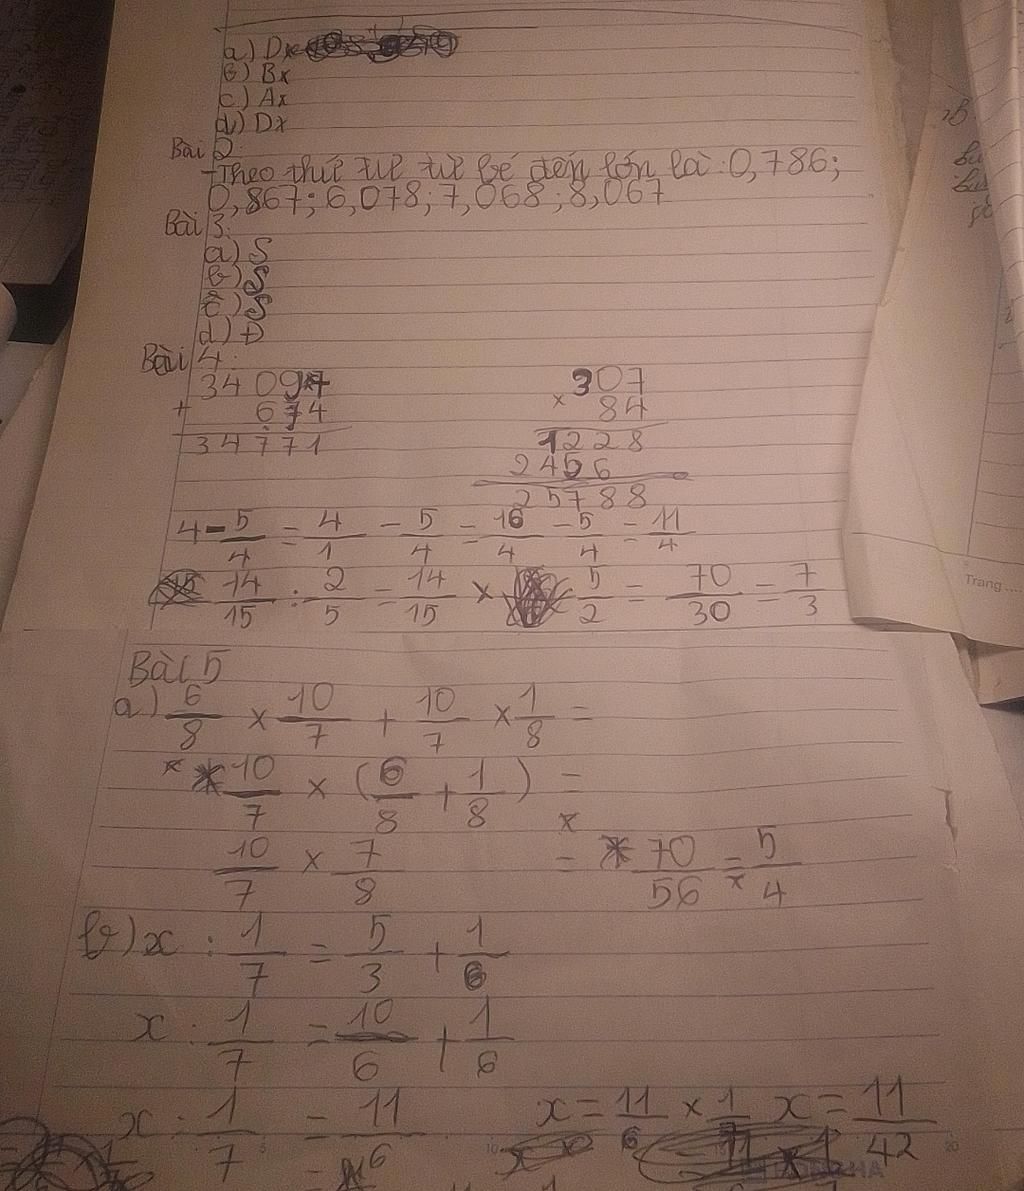 a) Dx
b) Bx
c) Ax
d) Dx
Bài 2:
-Theo thứ tự từ bé đến lớn là: 0,786;
0,867; 6,078; 7,068; 8,067
Bài 3:
a) S
b) S
c) S
d) Đ
Bài 4:
34097 307
+ 674 × 84
34771 1228
2456
25788
4 - 5/4 = 4/1 - 5/4 = 16/4 - 5/4 = 11/4
14/15 : 2/5 = 14/15 × 5/2 = 70/30 = 7/3
Trang ....
Bài 5
a) 6/8 × 10/7 + 10/7 × 1/8 =
10/7 × (6/8 + 1/8) =
10/7 × 7/8 = 70/56 = 5/4
b) x : 1/7 = 5/3 + 1/6
x : 1/7 = 10/6 + 1/6
x : 1/7 = 11/6 x = 11/6 × 1/7 x = 11/42